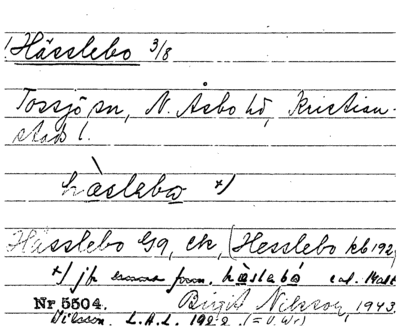 Hässlebo 3/8
Tossjö sn, N. Åsbo hd, Kristian-
stads l.
hàslebo x)
Hässlebo Gg, ek, (Hesslebo kb 192
x) jp samma form hàslebó enl.
Nr 5504. Birgit Nilsson, 1943
L.H.L. 1922 (= U.W.)